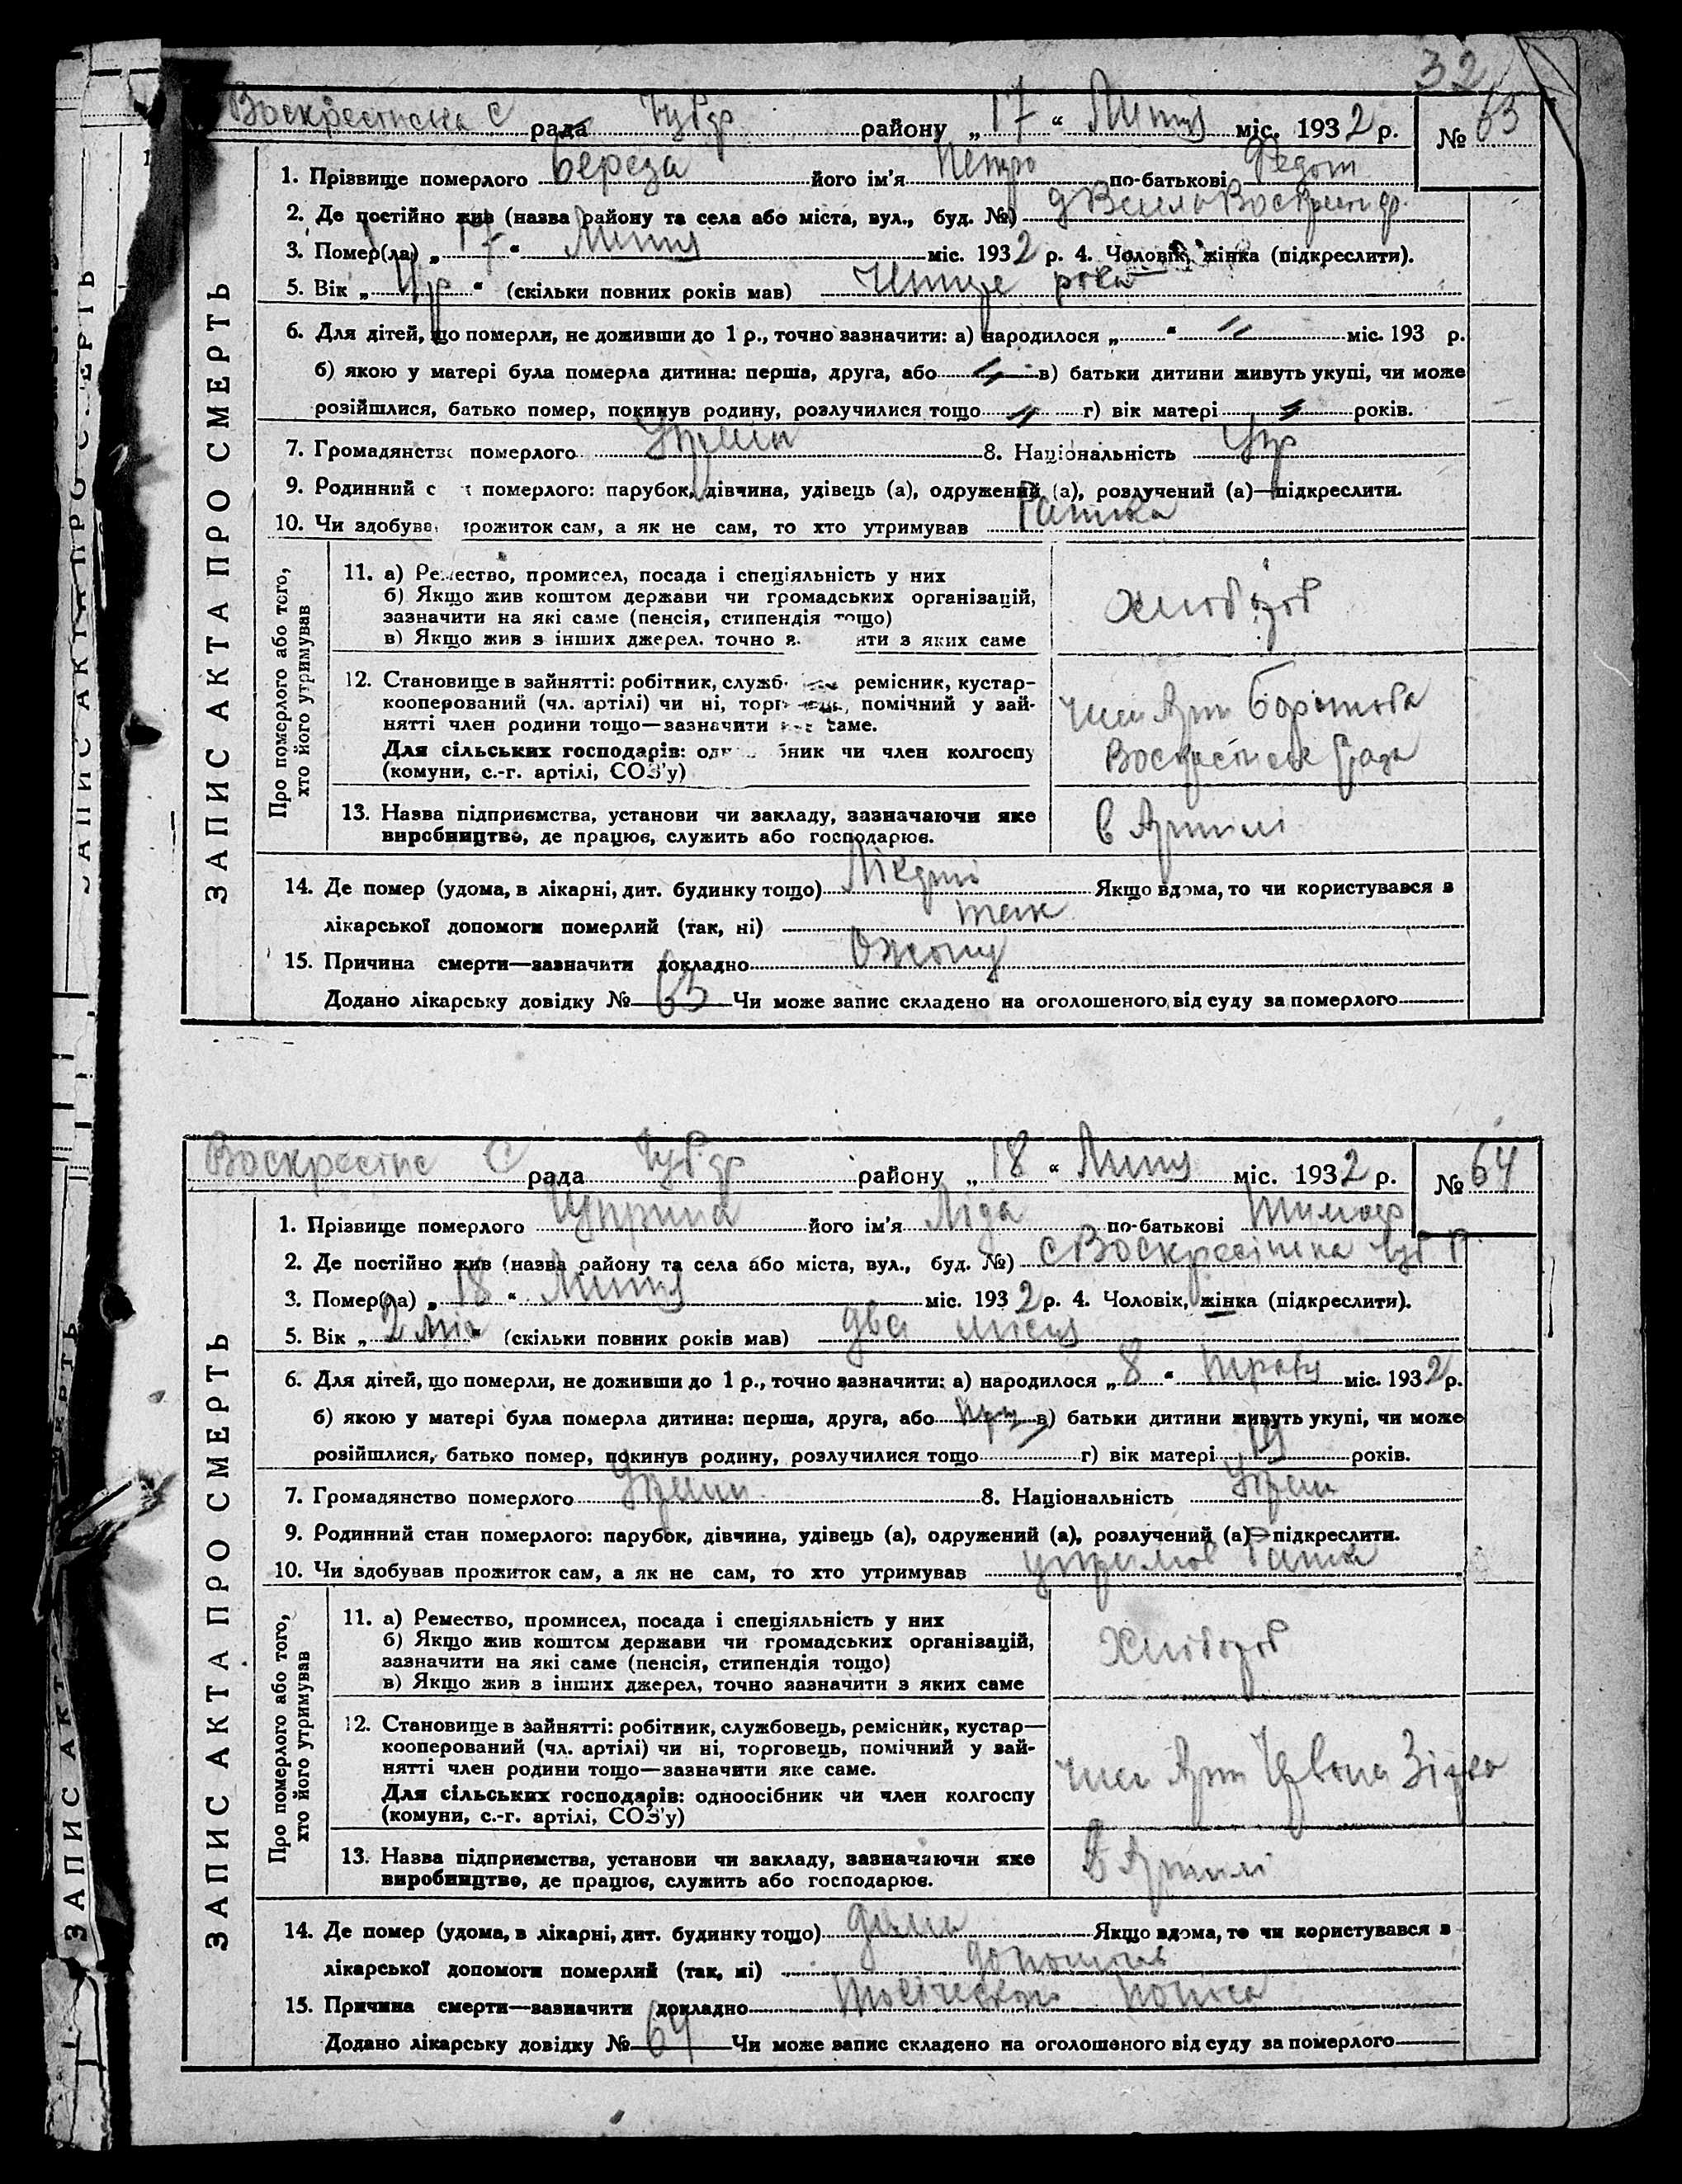 32
Воскресенска с рада Чубар району „17“ Липця міс. 1932 р. № 63
ЗАПИС АКТА ПРО СМЕРТЬ
1. Прізвище померлого Береза його ім'я Петро по-батькові Федот
2. Де постійно жив (назва району та села або міста, вул., буд. №)
3. Помер(ла) „17“ Липця міс. 1932 р. 4. Чоловік, жінка (підкреслити).
5. Вік „4 р“ (скільки повних років мав) Чотире рока
6. Для дітей, що померли, не доживши до 1 р., точно зазначити: а) народилося „ “ міс. 193 р.
б) якою у матері була померла дитина: перша, друга, або в) батьки дитини живуть укупі, чи може
розійшлися, батько помер, покинув родину, розлучилися тощо г) вік матері років.
7. Громадянство померлого Украин 8. Національність Укр
9. Родинний с т померлого: парубок, дівчина, удівець (а), одружений (а), розлучений (а)—підкреслити.
10. Чи здобува прожиток сам, а як не сам, то хто утримував Батька
Про померлого або того, хто його утримував
11. а) Ремество, промисел, посада і спеціяльність у них
б) Якщо жив коштом держави чи громадських організацій,
зазначити на які саме (пенсія, стипендія тощо)
в) Якщо жив з інших джерел. точно з яти з яких саме
Хлібороб
12. Становище в зайнятті: робітник, служб ремісник, кустар-
кооперований (чл. артілі) чи ні, торговець, помічний у зай-
нятті член родини тощо—зазначити яке саме.
Для сільських господарів: одн бник чи член колгоспу
(комуни, с.-г. артілі, СОЗ'у)
член Арт Боротьба
Воскресенск Рада
13. Назва підприємства, установи чи закладу, зазначаючи яке
виробництво, де працює, служить або господарює.
в Артилі
14. Де помер (удома, в лікарні, дит. будинку тощо) Лікарні Якщо вдома, то чи користувався з
лікарської допомоги померлий (так, ні) так
15. Причина смерти—зазначити докладно Ожогу
Додано лікарську довідку № 63 Чи може запис складено на оголошеного від суду за померлого
Воскресенс С рада Чубар району „18“ Липця міс. 1932 р. № 64
ЗАПИС АКТА ПРО СМЕРТЬ
1. Прізвище померлого Чуприна його ім'я Ліда по-батькові Тимоф
2. Де постійно жив (назва району та села або міста, вул., буд. №) с Воскресінка Чуб Р
3. Помер(ла) „18“ Липця міс. 1932 р. 4. Чоловік, жінка (підкреслити).
5. Вік „2 міс“ (скільки повних років мав) два місяця
6. Для дітей, що померли, не доживши до 1 р., точно зазначити: а) народилося „8“ травня міс. 1932 р.
б) якою у матері була померла дитина: перша, друга, або перш в) батьки дитини живуть укупі, чи може
розійшлися, батько помер, покинув родину, розлучилися тощо г) вік матері 19 років.
7. Громадянство померлого Украин 8. Національність Украи
9. Родинний стан померлого: парубок, дівчина, удівець (а), одружений (а), розлучений (а)—підкреслити.
10. Чи здобував прожиток сам, а як не сам, то хто утримував утримов Батька
Про померлого або того, хто його утримував
11. а) Ремество, промисел, посада і спеціяльність у них
б) Якщо жив коштом держави чи громадських організацій,
зазначити на які саме (пенсія, стипендія тощо)
в) Якщо жив з інших джерел, точно зазначити з яких саме
Хлібороб
12. Становище в зайнятті: робітник, службовець, ремісник, кустар—
кооперований (чл. артілі) чи ні, торговець, помічний у зай-
нятті член родини тощо—зазначити яке саме.
Для сільських господарів: одноосібник чи член колгоспу
(комуни, с.-г. артілі, СОЗ'у)
член Арт Червона Зірка
13. Назва підприємства, установи чи закладу, зазначаючи яке
виробництво, де працює, служить або господарює.
В Артилі
14. Де помер (удома, в лікарні, дит. будинку тощо) дома Якщо вдома, то чи користувався з
лікарської допомоги померлий (так, ні)
15. Причина смерти—зазначити докладно
Додано лікарську довідку № 64 Чи може запис складено на оголошеного від суду за померлого